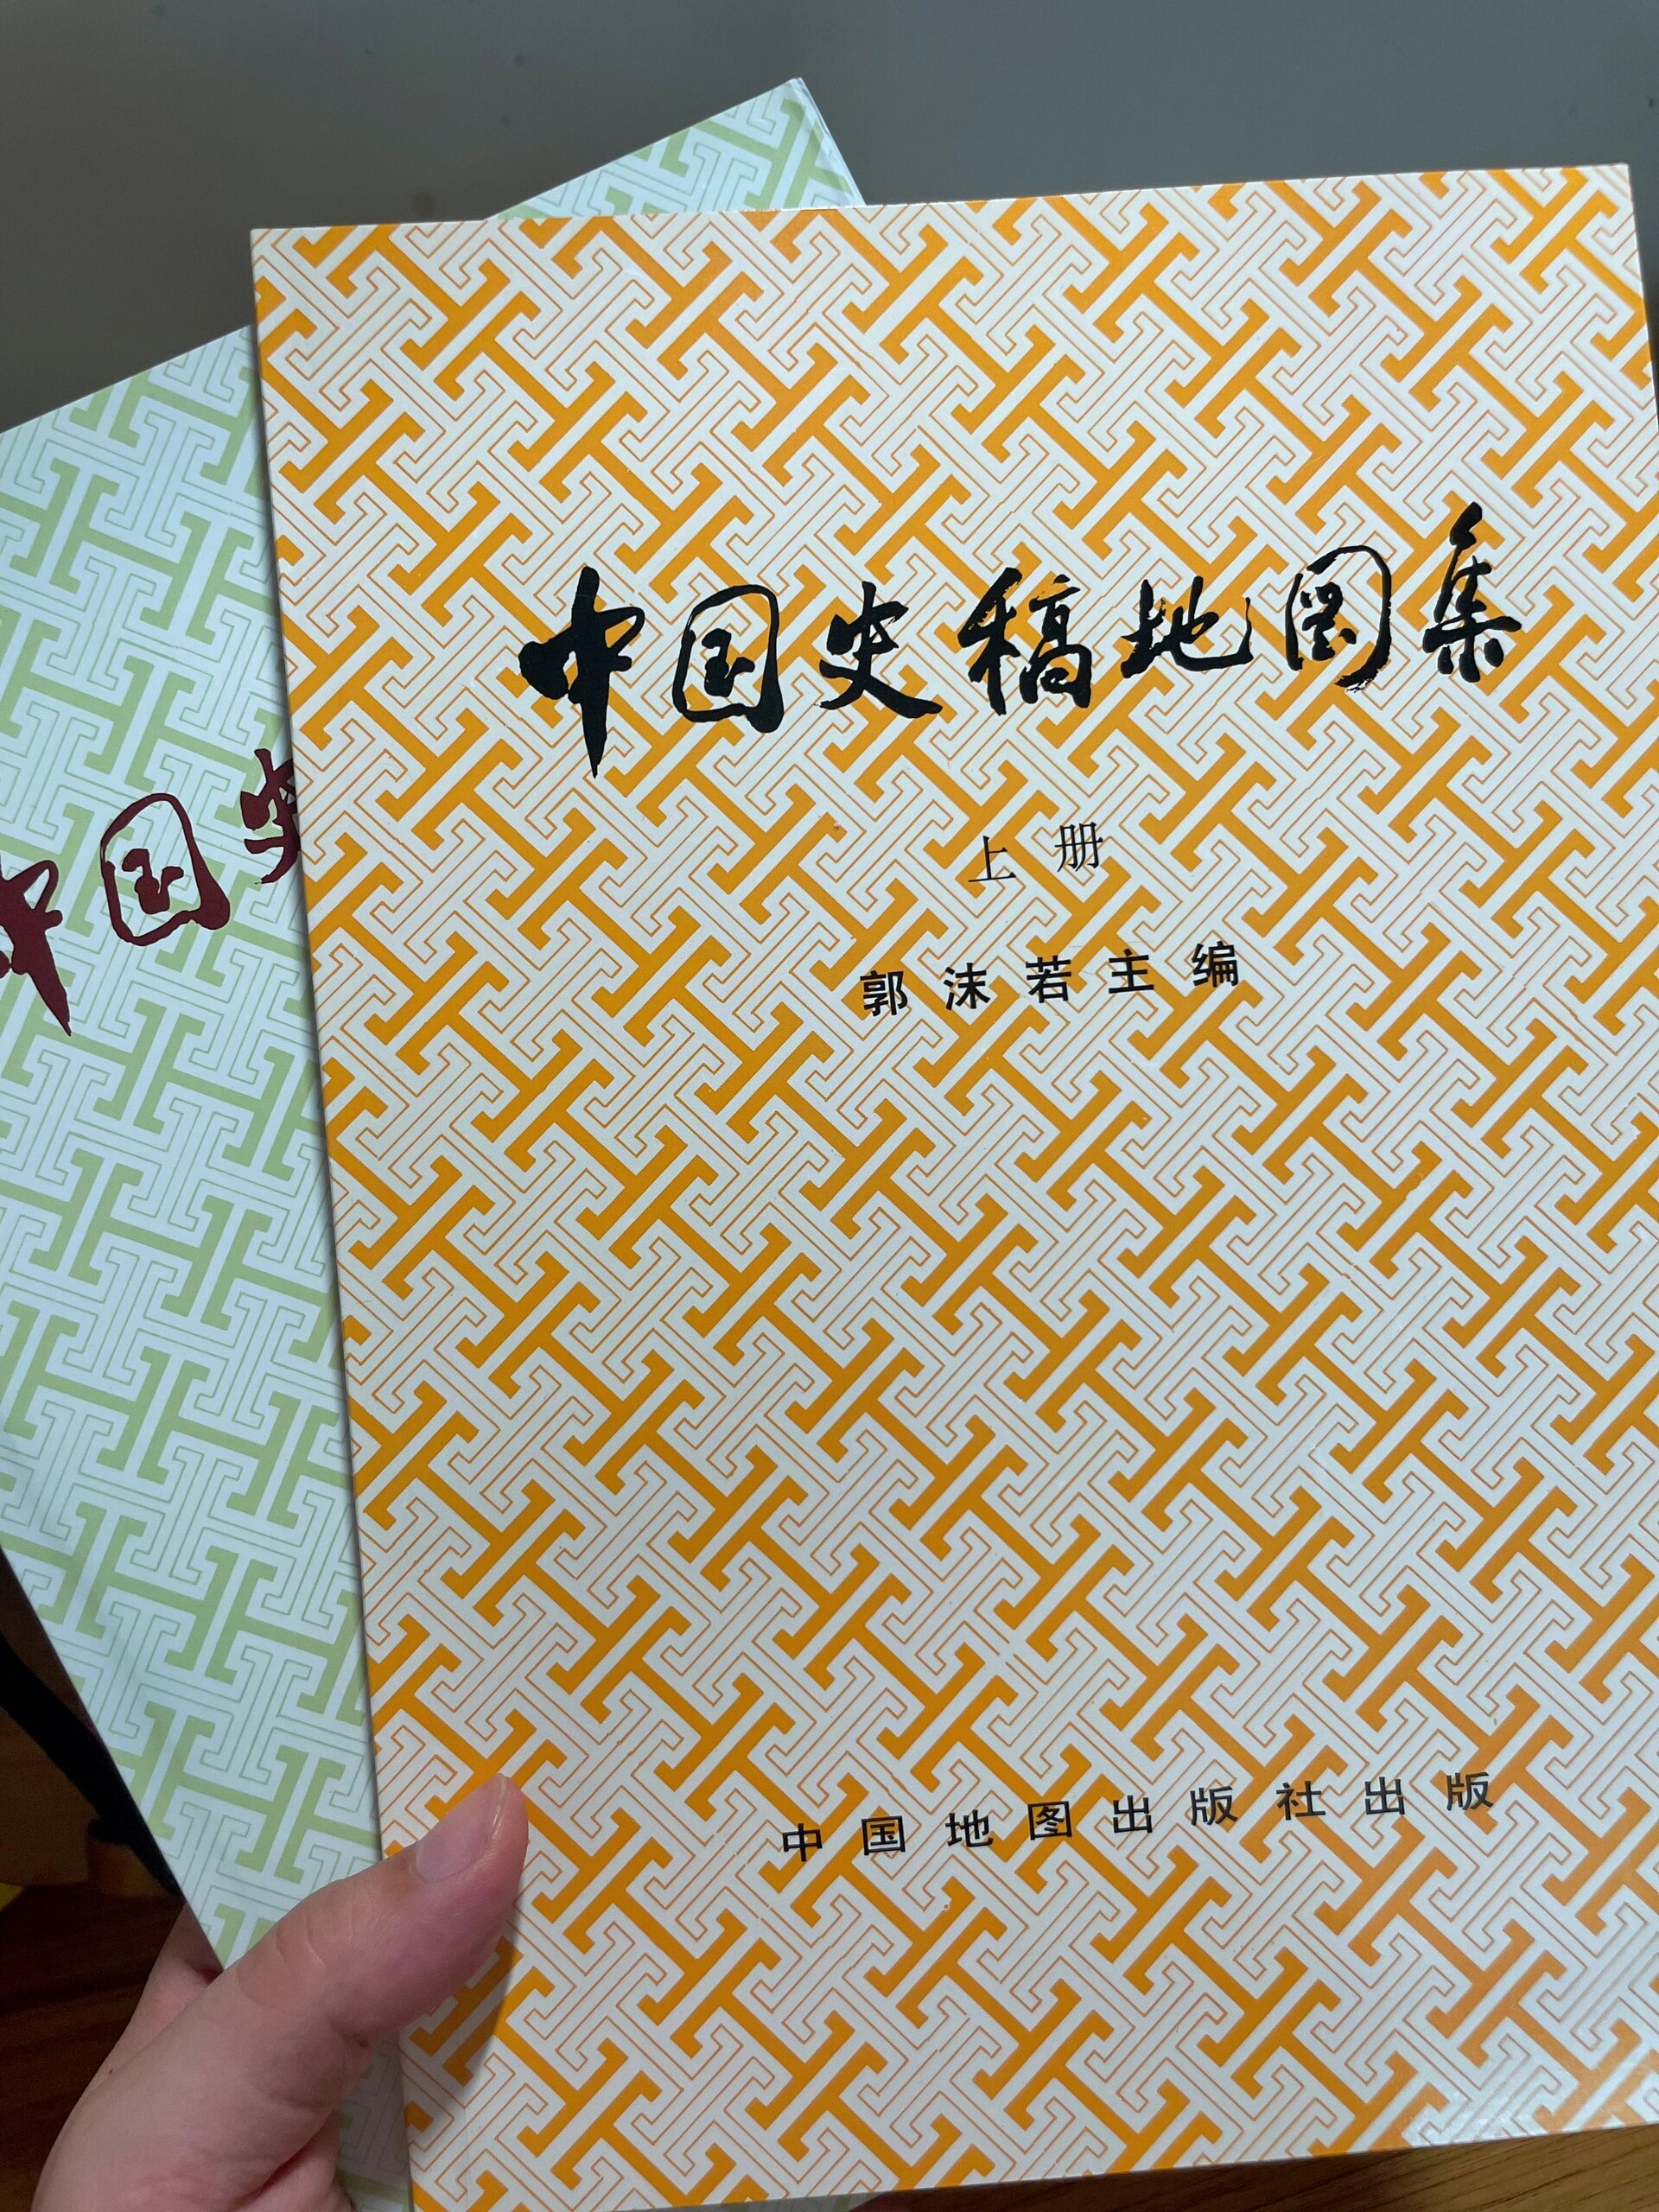 中国史稿地图集
上册
郭沫若主编
中国地图出版社出版
中国史